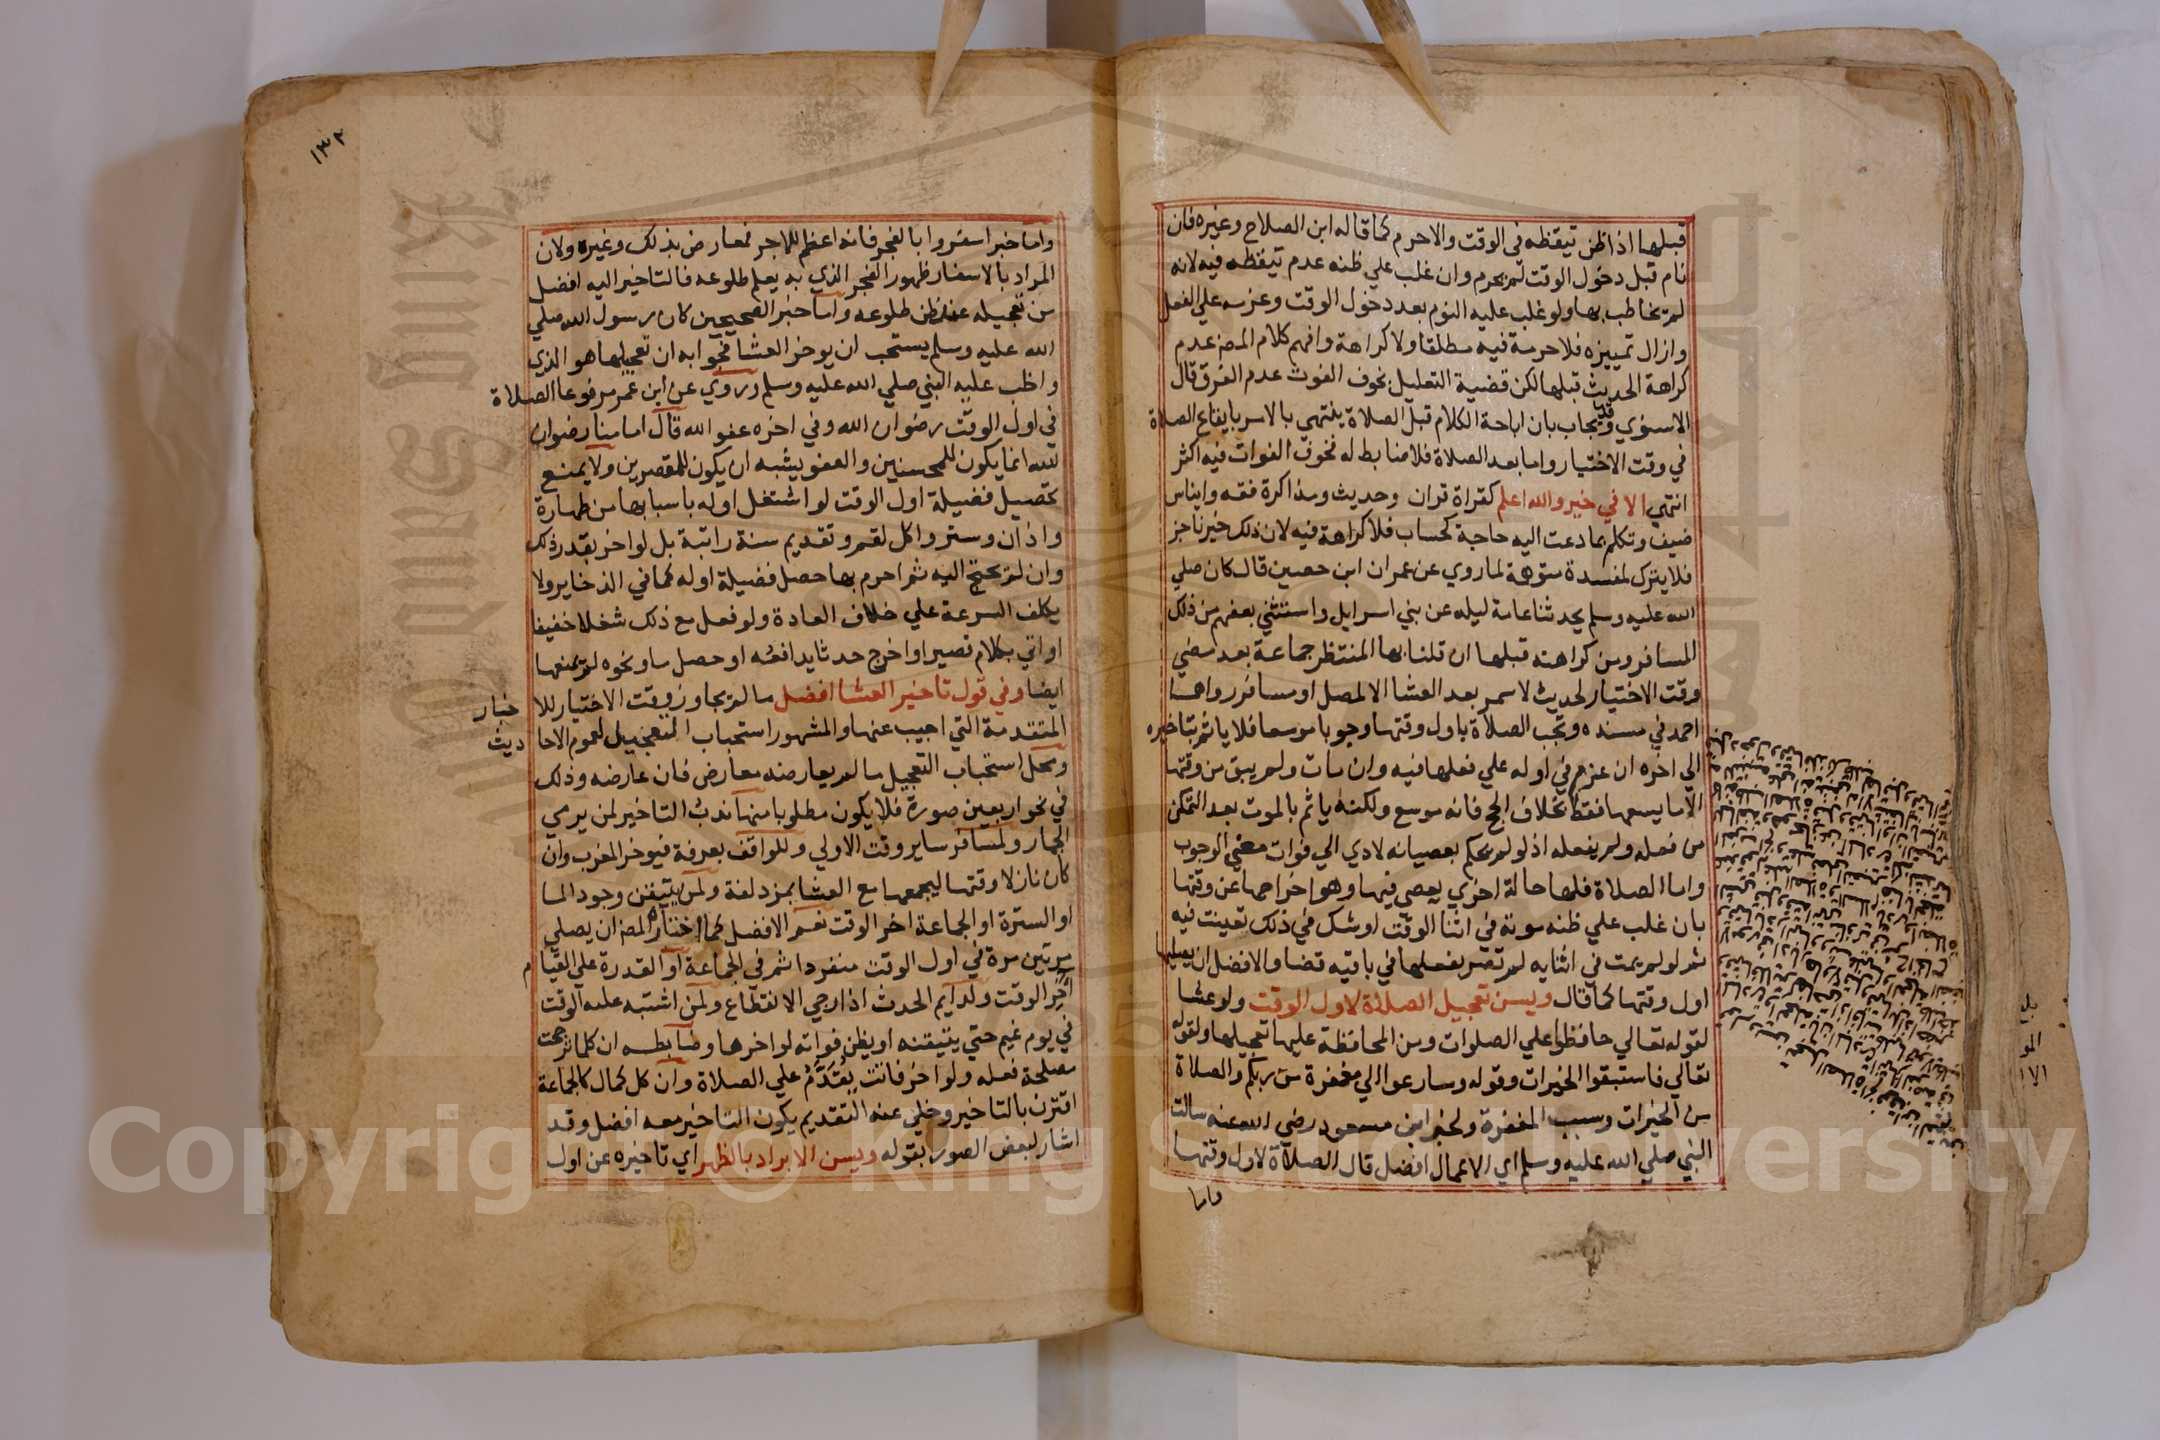 قبلها اذا ظن تيقظه في الوقت والاحرم كما قاله ابن الصلاح وغيره فان
نام قبل دخول الوقت لم يحرم وان غلب علي ظنه عدم تيقظه فيه لانه
لم يخاطب بها ولو غلب عليه النوم بعد دخول الوقت وعزمه علي الفعل
وازال تمييزه فلا حرمة فيه مطلقا ولا كراهة وافهم كلام المص عدم
كراهة الحديث قبلها لكن قضية التعليل بخوف الفوت عدم الفرق قال
الاسنوي وقد يجاب بان اباحة الكلام قبل الصلاة ينتهي بالامر بايقاع الصلاة
في وقت الاختيار واما بعد الصلاة فلا ضابط له فخوف الفوات فيه اكثر
انتهي الا في خير والله اعلم كقراة قران وحديث ومذاكرة فقه وايناس
ضيف وتكلم بما دعت اليه حاجة كحساب فلا كراهة فيه لان ذلك خير ناجز
فلا يترك لمفسدة متوهمة لما روي عن عمران ابن حصين قال كان صلي
الله عليه وسلم يحدثنا عامة ليله عن بني اسرايل واستثني بعضهم من ذلك
المسافر ومن كراهته قبلها ان قلنا بها المنتظر جماعة بعد مضي
وقت الاختيار لحديث لا سمر بعد العشا الا لمصل او مسافر رواهما
احمد في مسنده وتجب الصلاة باول وقتها وجوبا موسعا فلا ياثم بتاخيره
الي اخره ان عزم في اوله علي فعلها فيه وان مات ولم يبق من وقتها
الا ما يسعها فقط بخلاف الحج فانه موسع ولكنه ياثم بالموت بعد التمكن
من فعله ولم يفعله اذ لو لم يحكم بعصيانه لادي الي فوات معني الوجوب
واما الصلاة فلها حالة اخري يعصي فيها وهو اخراجها عن وقتها
بان غلب علي ظنه موته في اثنا الوقت او شك في ذلك تعينت فيه
ثم لو لم يمت في اثنايه لم تصر بفعلها في باقيه قضا والافضل ان يصليها
اول وقتها كما قال ويسن تعجيل الصلاة لاول الوقت ولو عشا
لقوله تعالي حافظوا علي الصلوات ومن المحافظة عليها تعجيلها ولقوله
تعالي فاستبقوا الخيرات وقوله وسارعوا الي مغفرة من ربكم والصلاة
من الخيرات وسبب المغفرة ولخبر ابن مسعود رضي الله عنه سالت
النبي صلي الله عليه وسلم اي الاعمال افضل قال الصلاة لاول وقتها
واما
١٣٢
واما خبر اسفروا بالفجر فانه اعظم للاجر فمعارض بذلك وغيره ولان
المراد بالاسفار ظهور الفجر الذي به يعلم طلوعه فالتاخير اليه افضل
من تعجيله عند ظن طلوعه واما خبر الصحيحين كان رسول الله صلي
الله عليه وسلم يستحب ان يوخر العشا فجوابه ان تعجيلها هو الذي
واظب عليه النبي صلي الله عليه وسلم وروي عن ابن عمر مرفوعا الصلاة
في اول الوقت رضوان الله وفي اخره عفو الله قال امامنا رضوان
الله انما يكون للمحسنين والعفو يشبه ان يكون للمقصرين ولا يمنع
تحصيل فضيلة اول الوقت لو اشتغل اوله باسبابها من طهارة
واذان وستر واكل لقم وتقديم سنة راتبة بل لو اخر بقدر ذلك
وان لم يحتج اليه ثم احرم بها حصل فضيلة اوله كما في الذخاير ولا
يكلف السرعة علي خلاف العادة ولو فعل مع ذلك شغلا خفيفا
او اتي بكلام قصير او اخرج حدثا يدافعه او حصل ماء ونحوه لم يمنعها
ايضا وفي قول تاخير العشا افضل ما لم يجاوز وقت الاختيار للا
خبار
المتقدمة التي اجيب عنها والمشهور استحباب التعجيل لعموم الاحا
ديث
ومحل استحباب التعجيل ما لم يعارضه معارض فان عارضه وذلك
في نحو اربعين صورة فلا يكون مطلوبا منها ندب التاخير لمن يرمي
الجمار ولمسافر ساير وقت الاولي وللواقف بعرفة فيوخر المغرب وان
كان نازلا وقتها ليجمعها مع العشا بمزدلفة ولمن يتيقن وجود الما
او السترة او الجماعة اخر الوقت نعم الافضل كما اختاره المص ان يصلي
مرتين مرة في اول الوقت منفردا ثم في الجماعة او القدرة علي القيام
آخر الوقت ولدايم الحدث اذا رجي الانقطاع ولمن اشتبه عليه الوقت
في يوم غيم حتي يتيقنه او يظن فواته لو اخرها وضابطه ان كلما ترجحت
مصلحة فعله ولو اخر فاتت يقدم علي الصلاة وان كل كمال كالجماعة
اقترن بالتاخير وخلي عنه التقديم يكون التاخير معه افضل وقد
اشار لبعض الصور بقوله ويسن الابراد بالظهر اي تاخيره عن اول
Copyright © King Saud University